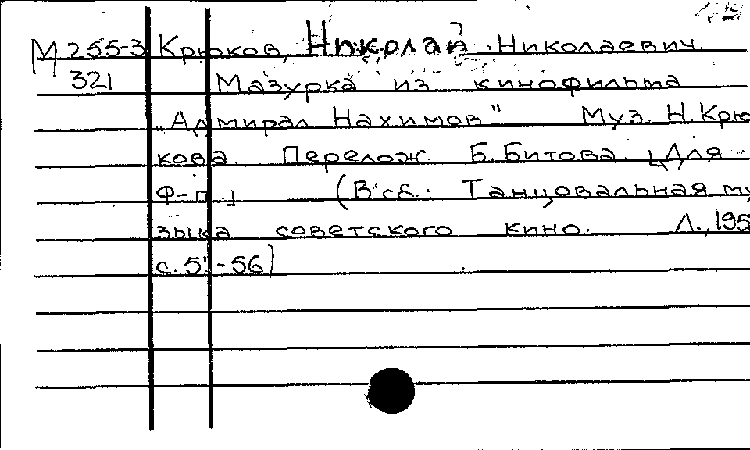 М 255-3 Крюков, Николай Николаевич
321 Мазурка из кинофильма
„Адмирал Нахимов" Муз. Н. Крю
кова Перелож. Б. Битова. [Для
ф-п.] (В сб.: Танцовальная му
зыка советского кино. Л., 195
с. 5 -56)